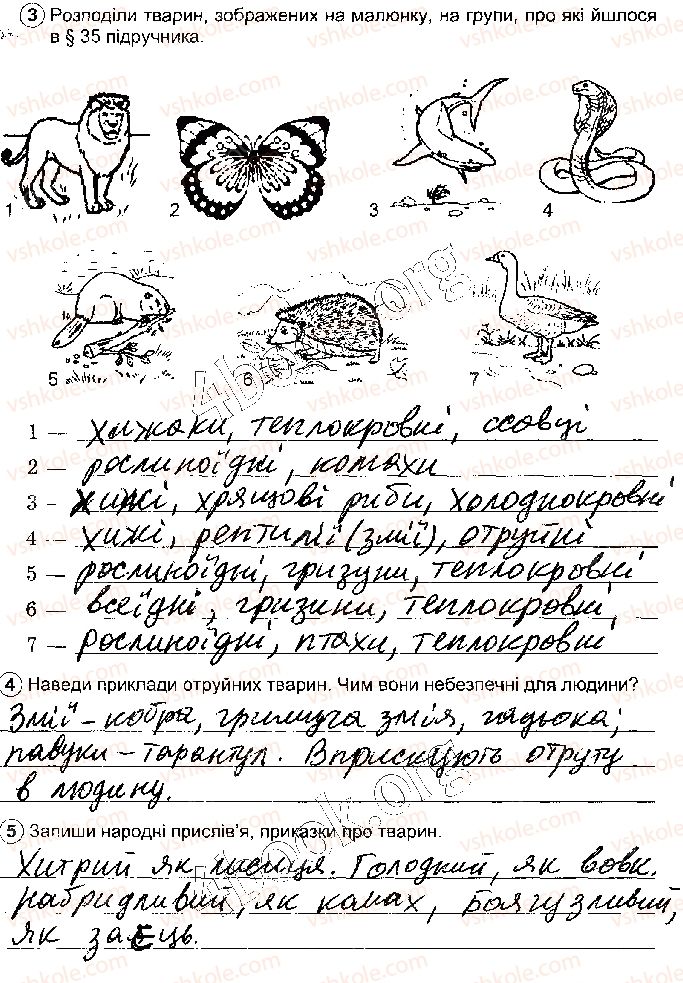 3 Розподіли тварин, зображених на малюнку, на групи, про які йшлося
в § 35 підручника.
1
2
3
4
5
6
7
1 — хижаки, теплокровні, ссавці
2 — рослиноїдні, комахи
3 - хижі, хрящові риби, холоднокровні
4 — хижі, рептилії (змії), отруйні
5 — рослиноїдні, гризуни, теплокровні
6 — всеїдні, гризини, теплокровні,
7 — рослиноїдні, птахи, теплокровні
4 Наведи приклади отруйних тварин. Чим вони небезпечні для людини?
Змії - кобра, гримуча змія, гадюка;
павуки - тарантул. Вприскують отруту
в людину.
5 Запиши народні прислів'я, приказки про тварин.
Хитрий як лисиця. Голодний, як вовк.
Набридливий, як комах, Боягузливий,
як заєць.
vshkole.com
4book.org